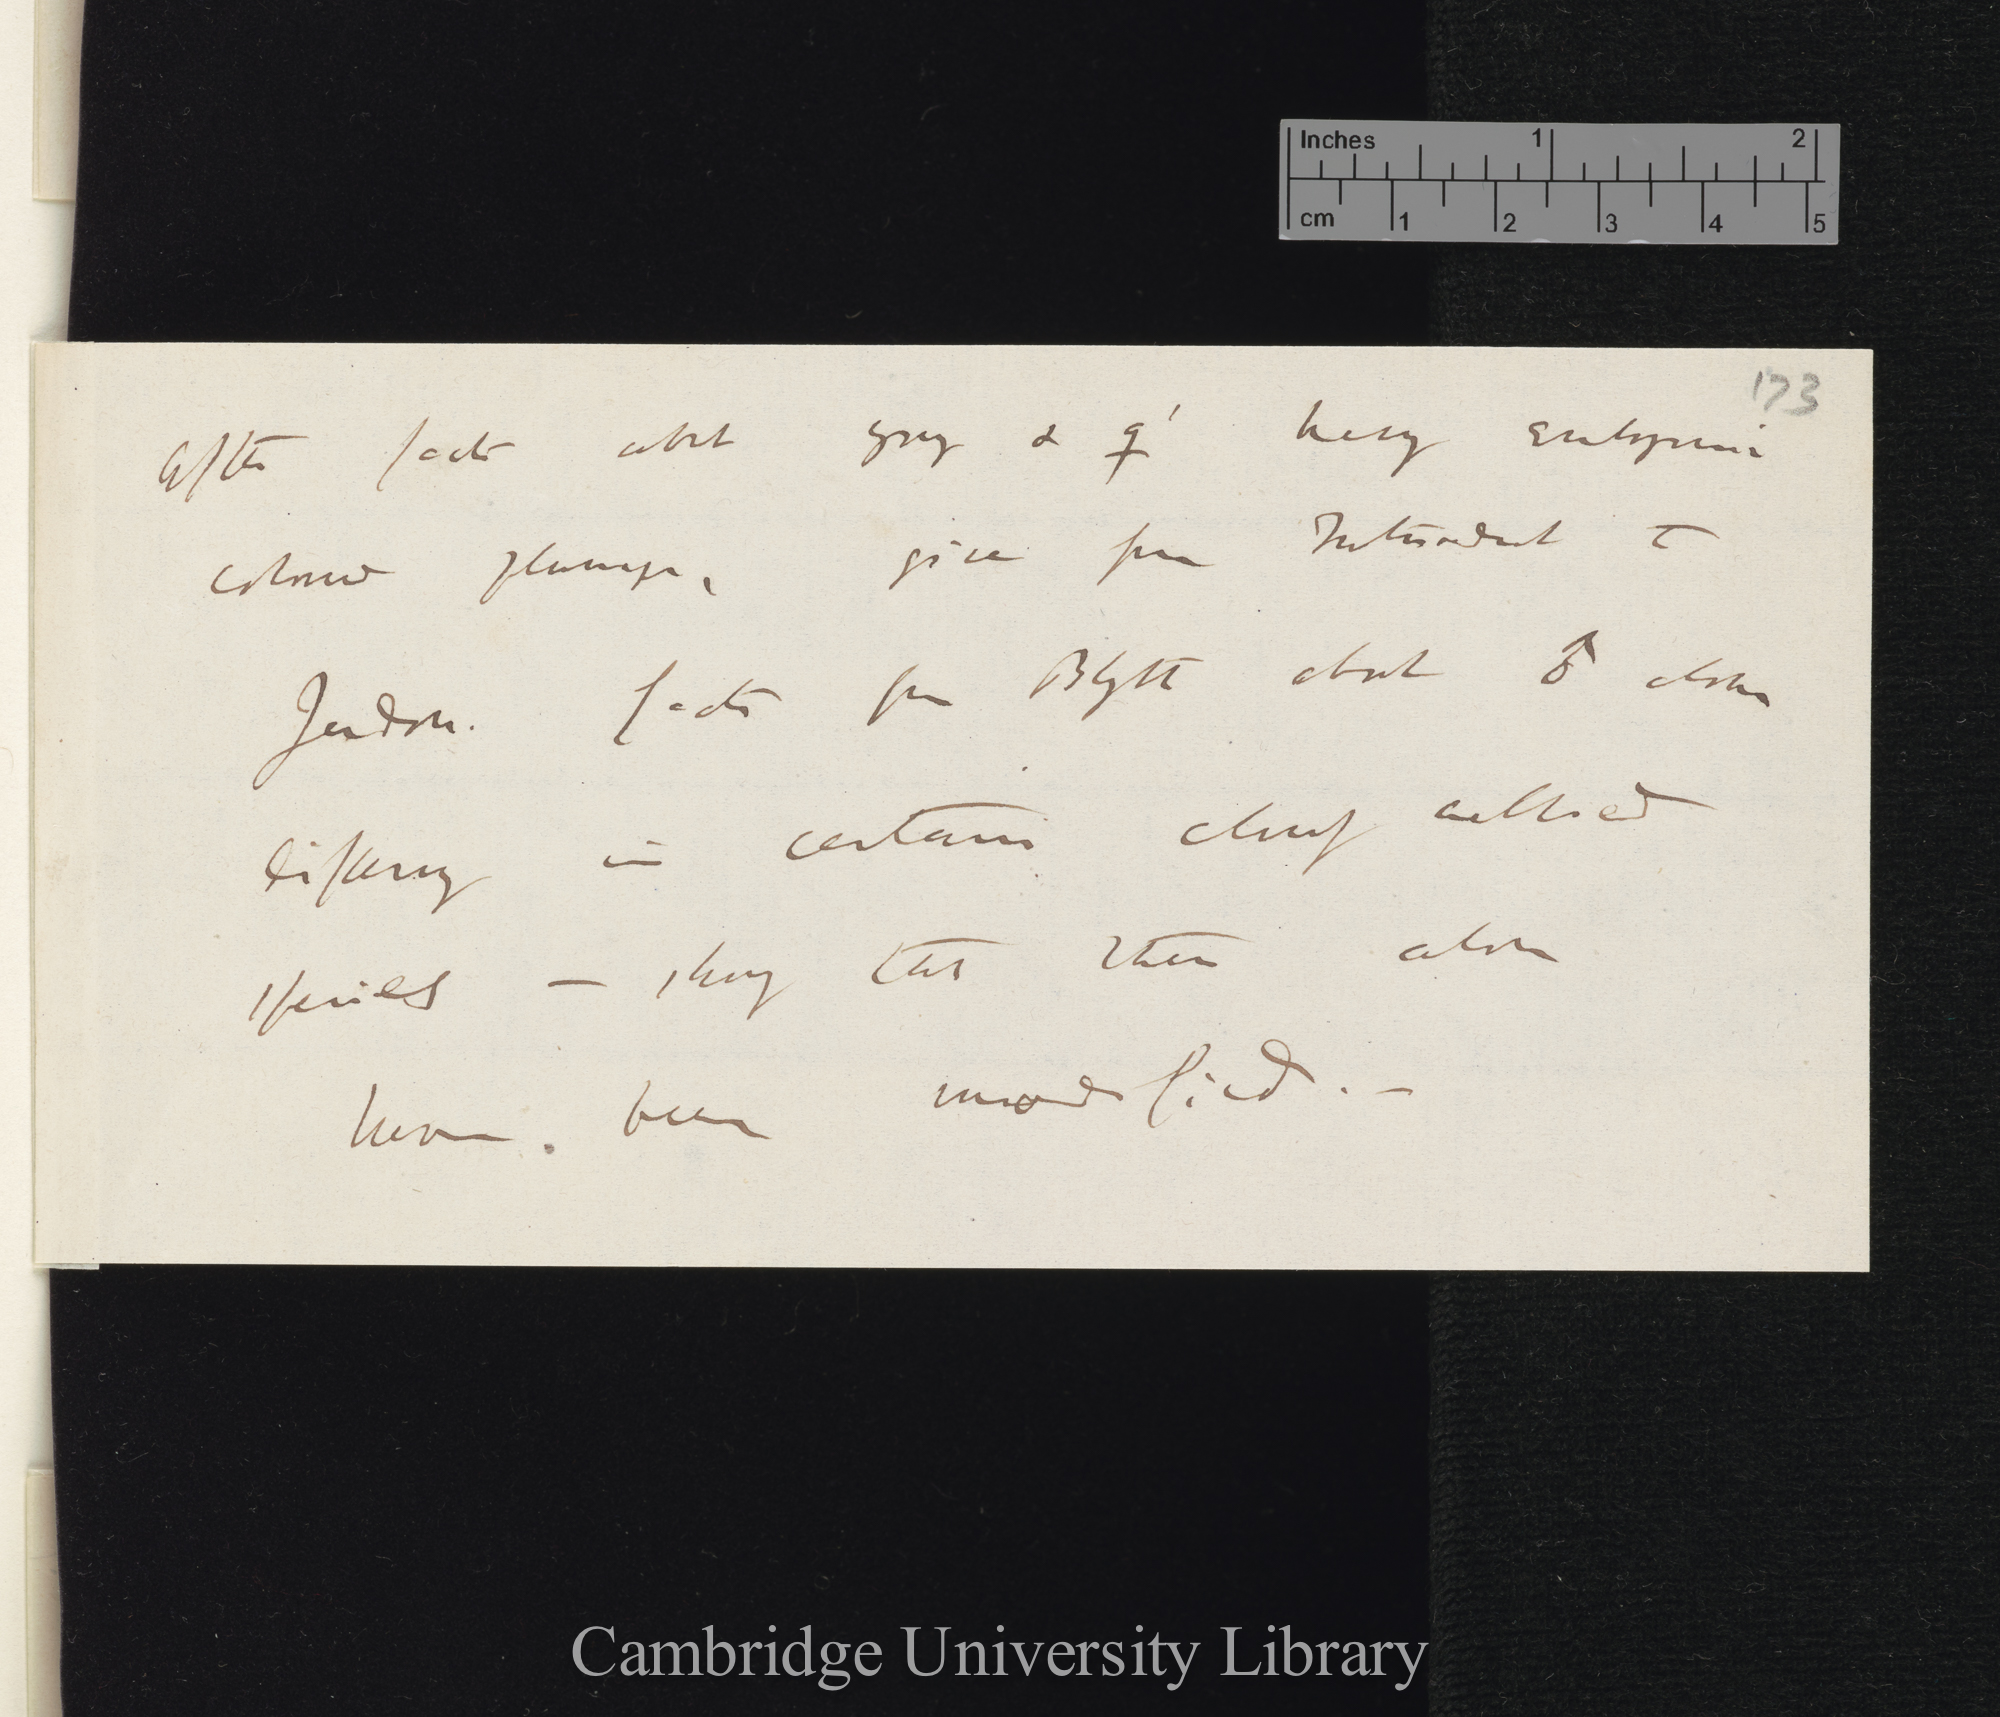 Inches 1 2
cm 1 2 3 4 5
173
After facts about young & ♀' having
coloured plumage, give from Introduct to
Jerdon. facts from Blyth about ♂ alone
differing in certain closely allied
species — showing that these alone
have been modified. —
Cambridge University Library